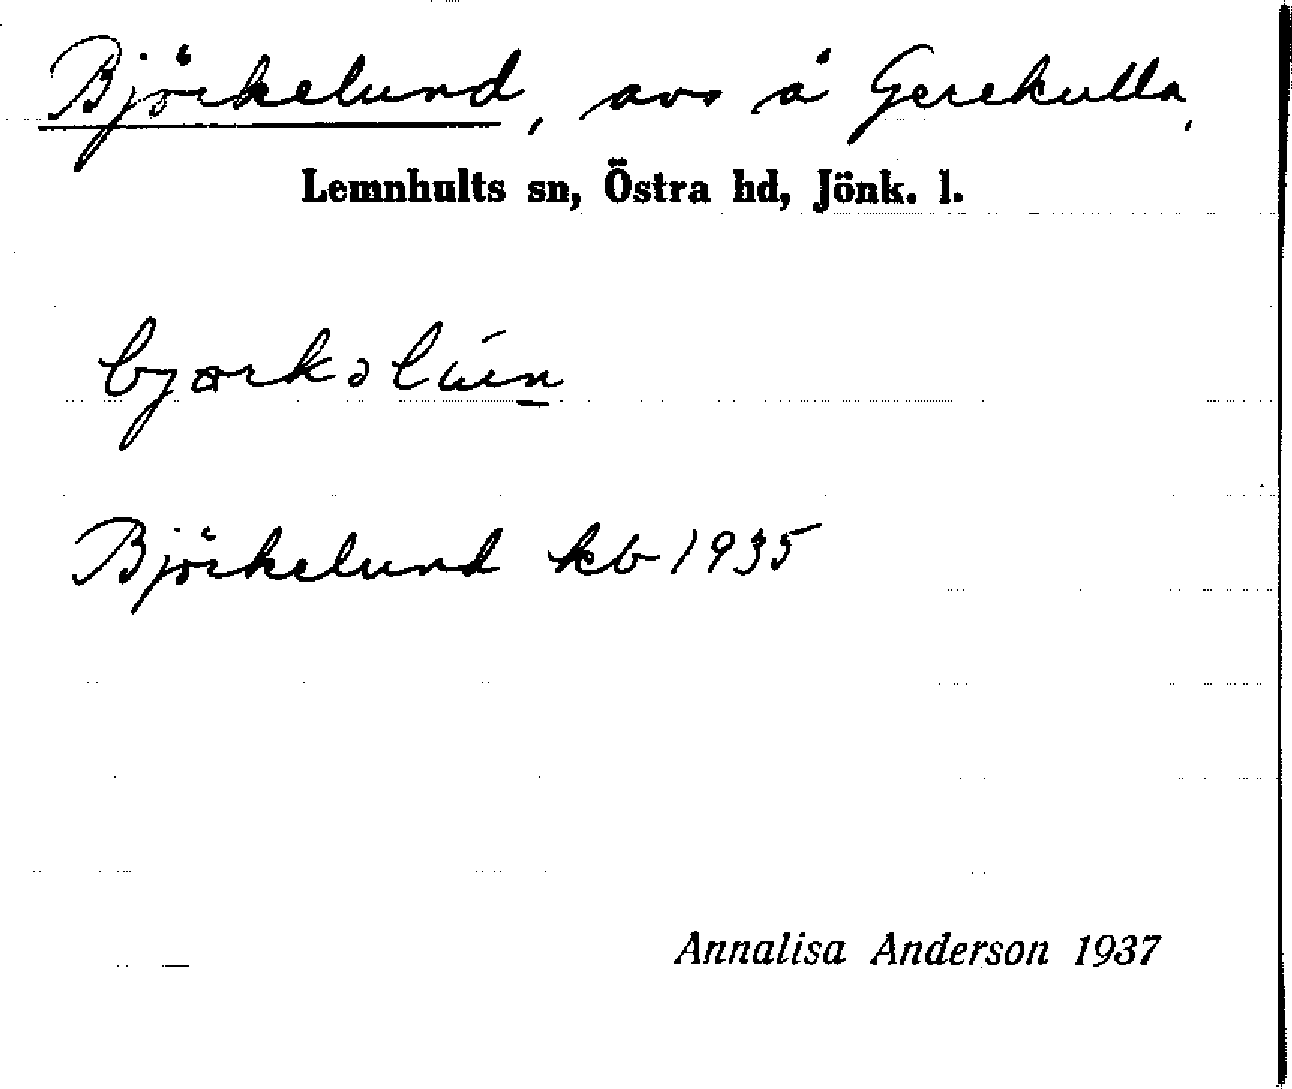 Björkelund, avs å Gerekulla,
Lemnhults sn, Östra hd, Jönk. l.
bjørkəlúen
Björkelund kb 1935
Annalisa Anderson 1937